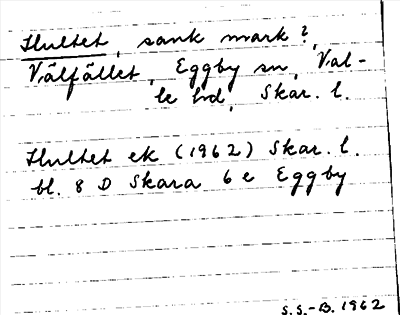 Hultet, sank mark?,
Välfället, Eggby sn, Val-
le hd, Skar. l.
Hultet ek (1962) Skar. l.
bl. 8 D Skara 6 e Eggby
S.S.-B. 1962